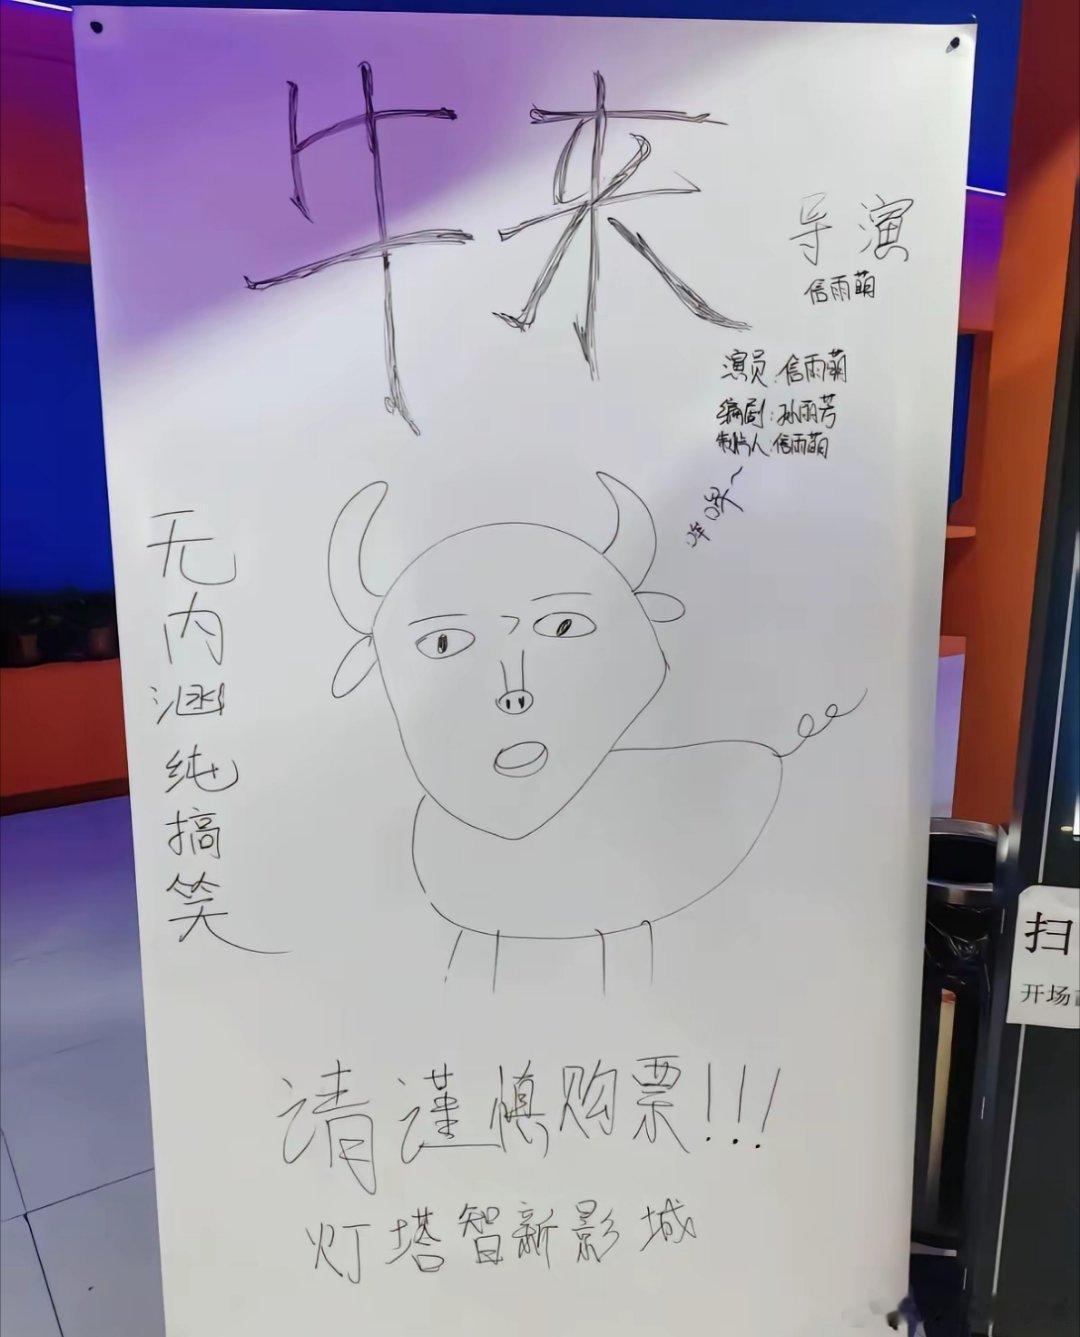 牛来
导演
信雨萌
演员:信雨萌
编剧:孙丽芳
制片人:信雨萌
哞~
无内涵纯搞笑
请谨慎购票!!!
灯塔智新影城
扫
开场